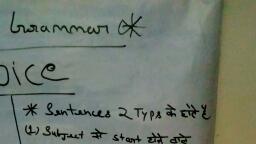 Grammar
OICE
* Sentences 2 Typs के होते है
(1) Subject से start होने वाले